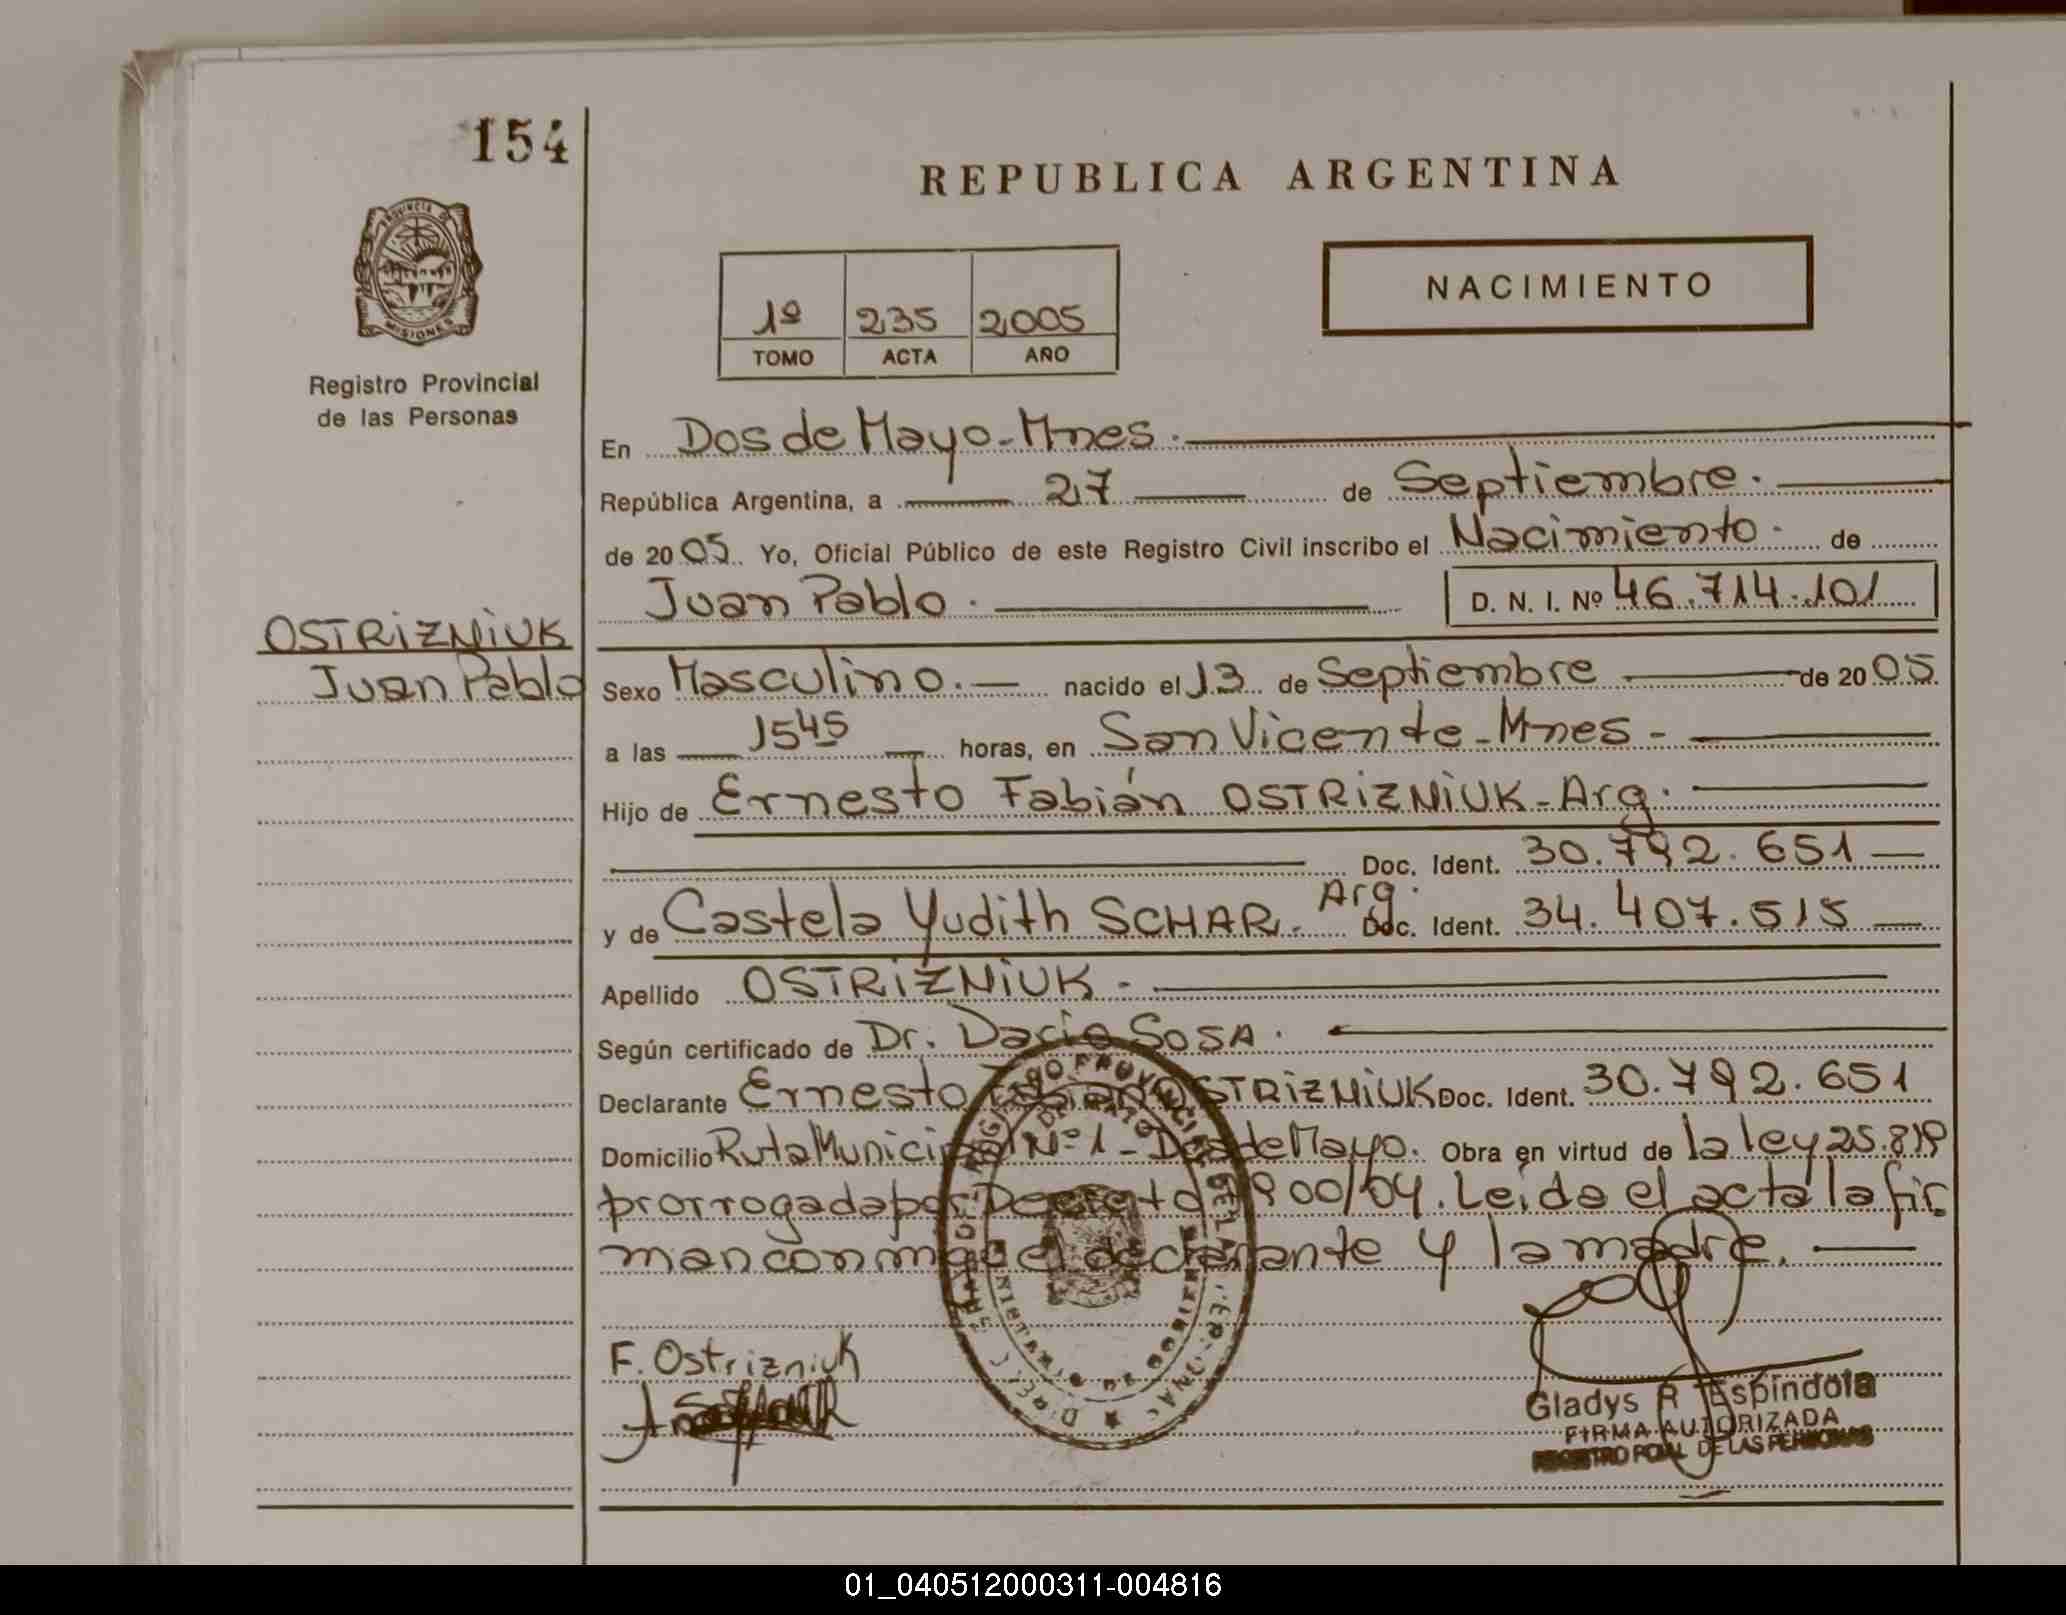 154
REPUBLICA ARGENTINA
PROVINCIA DE
MISIONES
Registro Provincial
de las Personas
NACIMIENTO
1º 235 2005
TOMO ACTA AÑO
En Dos de Mayo - Mnes.
República Argentina, a 27 de Septiembre.
de 2005. Yo, Oficial Público de este Registro Civil inscribo el Nacimiento. de
Juan Pablo. D. N. I. Nº 46.714.101
OSTRIZNIUK
Juan Pablo
Sexo Masculino. nacido el 13 de Septiembre de 2005.
a las 1545 horas, en San Vicente - Mnes -
Hijo de Ernesto Fabián OSTRIZNIUK - Arg.
Doc. Ident. 30.792.651
y de Castela Yudith SCHAR. Arg. Doc. Ident. 34.407.515
Apellido OSTRIZNIUK.
Según certificado de Dr. Dacio SOSA.
Declarante Ernesto Fabián OSTRIZNIUK Doc. Ident. 30.792.651
Domicilio Ruta Municipal Nº 1 - Dos de Mayo. Obra en virtud de la ley 25.819
prorrogada por Decreto 1900/04. Leída el acta la fir
man conmigo el declarante y la madre.
F. Ostrizniuk
Gladys R Espíndola
FIRMA AUTORIZADA
REGISTRO PCIAL DE LAS PERSONAS
01_040512000311-004816